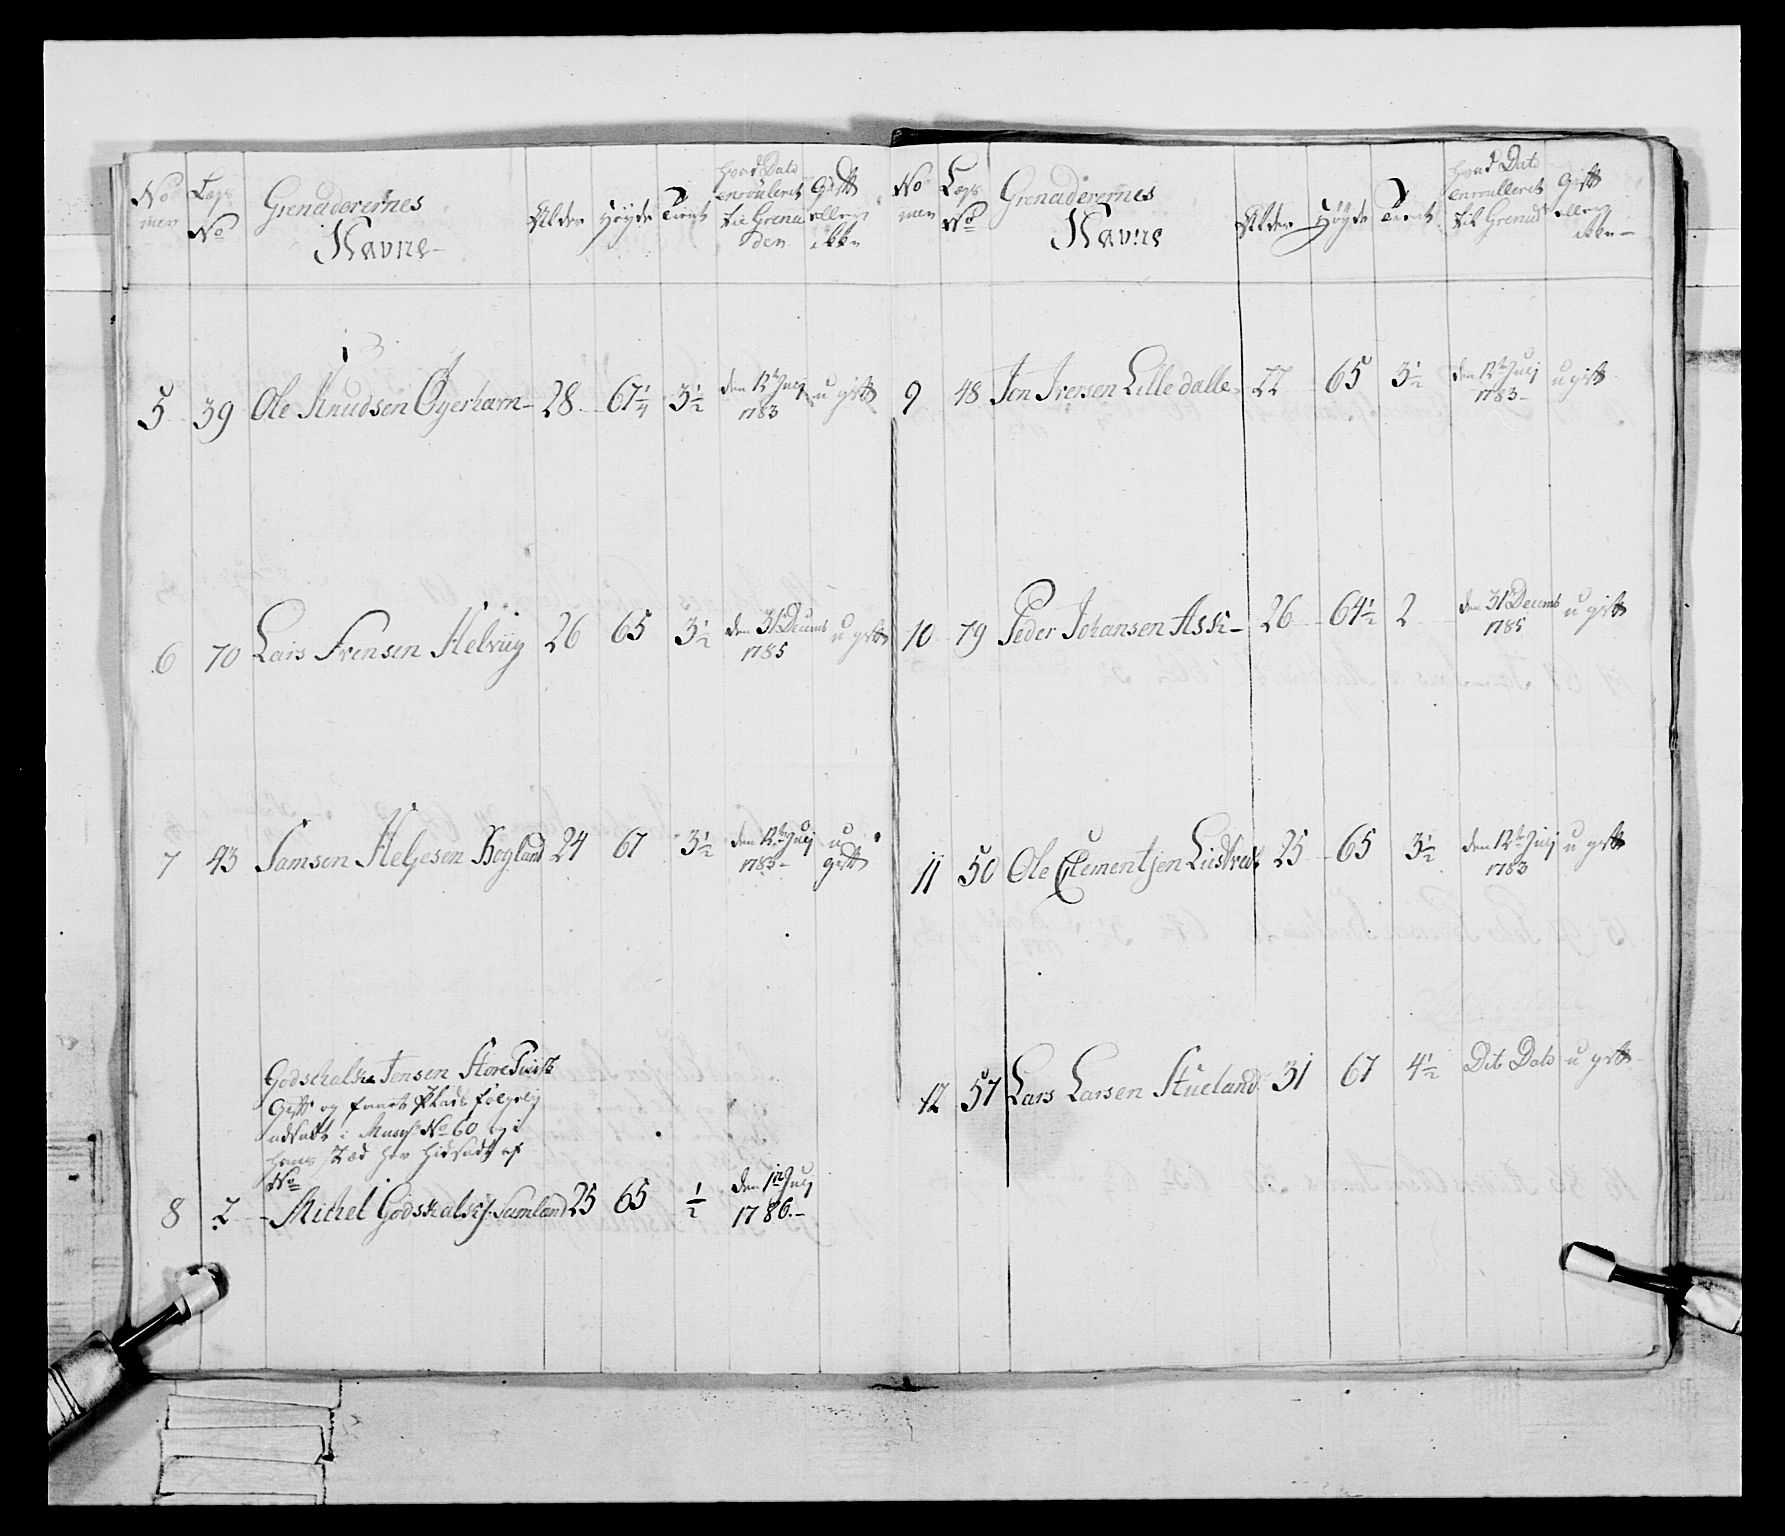 No mer
Lægs No
Grenaderernes Navne
Alder
Høyde
Tient
hvad Dato enroulleret til Grenaden
Gift eller ikke
5 39 Ole Knudsen Øyerhavn 28 67 1/4 3 1/2 den 12te Julj 1783 u gift
6 70 Lars Frensen Helviig 26 65 3 1/2 den 31 Decemb 1785 u gift
7 43 Samsen Heljesen Hogland 24 67 3 1/2 den 12te Julj 1783 u gift
Godschalk Jensen Store
Gift og faaet Plads følgelig
udsadt i No 60 og i
hans stæd her hidsadt af
No
8 2 Michel Godskalks: Sumland 25 65 1/2 den 1te Julj 1786.
No mer
Lægs No
Grenaderernes Navne
Alder
Høyde
Tient
hvad Dato enroulleret til Grenad
Gift eller ikke
9 48 Jon Iversen Lilledalle 22 65 3 1/2 den 12te Julj 1783 u gift
10 79 Peder Johansen Ask 26 64 1/2 2 den 31 Decemb 1785 u gift
11 50 Ole Clementsen 25 65 3 1/2 den 12te Julj 1783 u gift
12 57 Lars Larsen Stueland 31 67 4 1/2 Dit Dato u gift